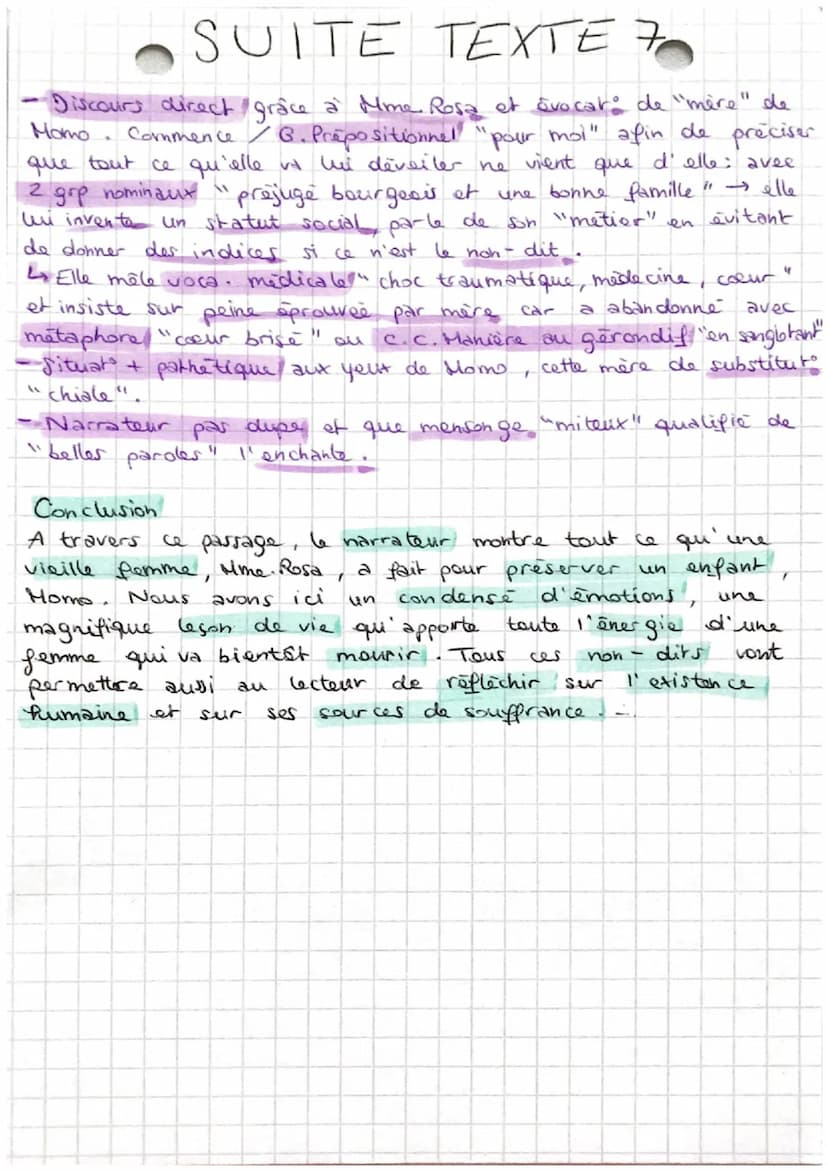 SUITE TEXTE 7
- Discours direct grâce à Mme Rosa et évocat° de "mère" de
Momo. Commence / G. Prépositionnel "pour moi" afin de préciser
que tout ce qu'elle va lui dévoiler ne vient que d'elle : avec
2 grp nominaux "préjugé bourgeois et une bonne famille" → elle
lui invente un statut social, parle de son "métier" en évitant
de donner des indices si ce n'est le non-dit.
↳ Elle mêle voca. médicale "choc traumatique, médecine, cœur"
et insiste sur peine éprouvée par mère car a abandonné avec
métaphore "cœur brisé" ou C.C. Manière au gérondif "en sanglotant"
- Situat° + pathétique aux yeux de Momo, cette mère de substitut°
"chiale".
- Narrateur pas dupe et que mensonge "miteux" qualifié de
"belles paroles" l'enchante.
Conclusion
A travers ce passage, le narrateur montre tout ce qu'une
vieille femme, Mme. Rosa, a fait pour préserver un enfant,
Momo. Nous avons ici un condensé d'émotions, une
magnifique leçon de vie qu'apporte toute l'énergie d'une
femme qui va bientôt mourir. Tous ces non-dits vont
permettre aussi au lecteur de réfléchir sur l'existence
humaine et sur ses sources de souffrance...